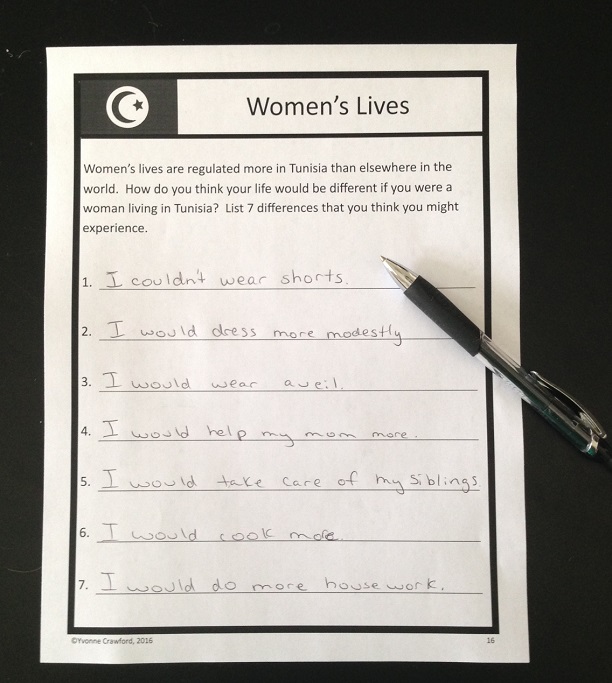 Women's Lives
Women's lives are regulated more in Tunisia than elsewhere in the
world. How do you think your life would be different if you were a
woman living in Tunisia? List 7 differences that you think you might
experience.
1. I couldn't wear shorts.
2. I would dress more modestly
3. I would wear a veil.
4. I would help my mom more.
5. I would take care of my siblings
6. I would cook more.
7. I would do more housework.
©Yvonne Crawford, 2016 16